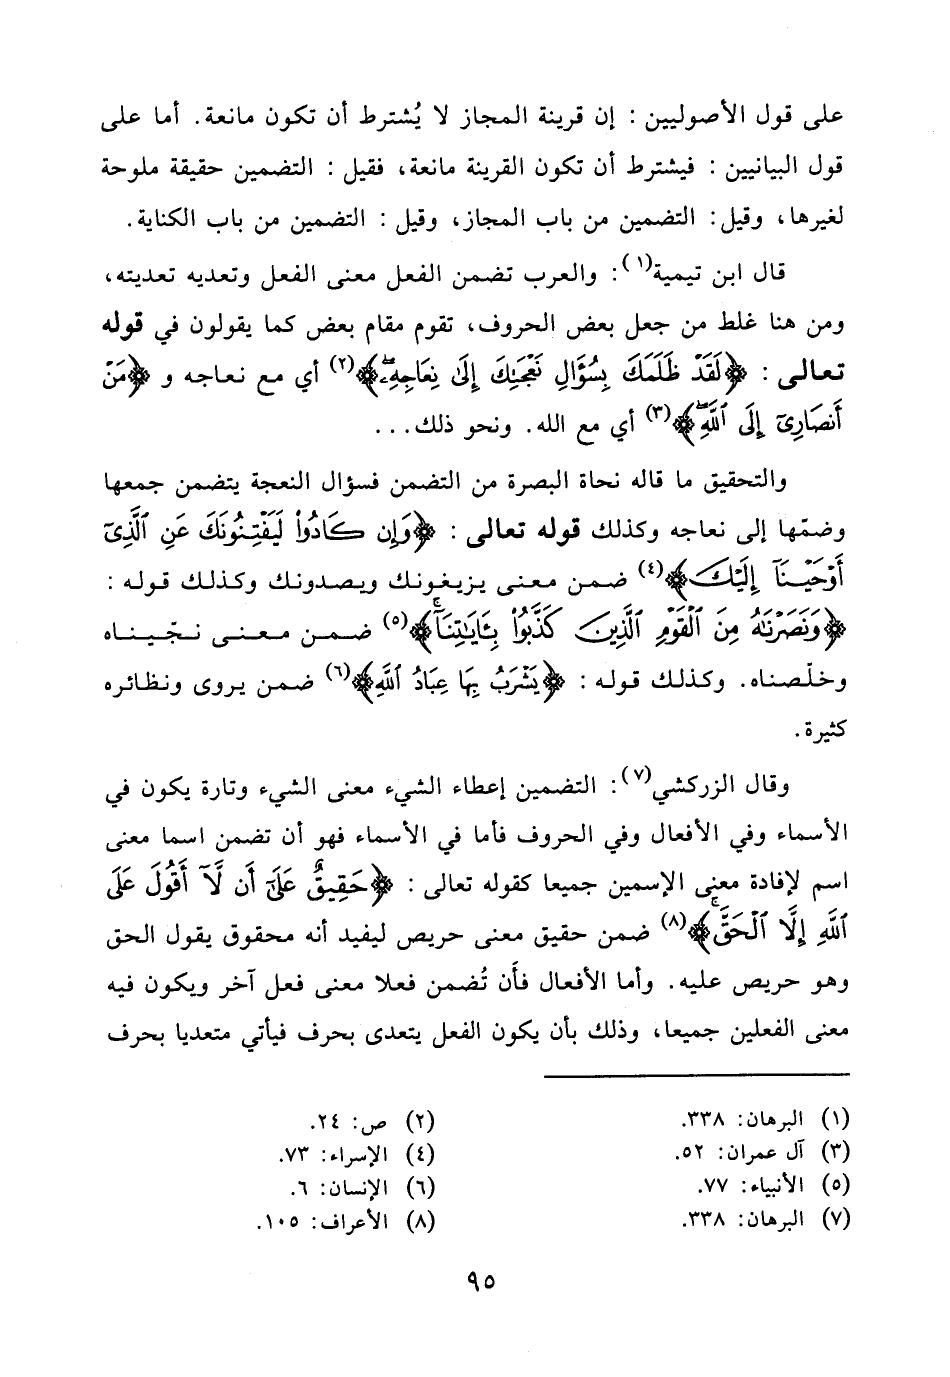 على قول الأصوليين : إن قرينة المجاز لا يُشترط أن تكون مانعة. أما على
قول البيانيين : فيشترط أن تكون القرينة مانعة، فقيل : التضمين حقيقة ملوحة
لغيرها، وقيل: التضمين من باب المجاز، وقيل : التضمين من باب الكناية.
قال ابن تيمية(١): والعرب تضمن الفعل معنى الفعل وتعديه تعديته،
ومن هنا غلط من جعل بعض الحروف، تقوم مقام بعض كما يقولون في قوله
تعالى : ﴿لَقَدْ ظَلَمَكَ بِسُؤَالِ نَعْجَتِكَ إِلَىٰ نِعَاجِهِۦۖ﴾(٢) أي مع نعاجه و ﴿مَنْ
أَنصَارِيٓ إِلَى ٱللَّهِۖ﴾(٣) أي مع الله. ونحو ذلك...
والتحقيق ما قاله نحاة البصرة من التضمن فسؤال النعجة يتضمن جمعها
وضمّها إلى نعاجه وكذلك قوله تعالى : ﴿وَإِن كَادُوا۟ لَيَفْتِنُونَكَ عَنِ ٱلَّذِيٓ
أَوْحَيْنَآ إِلَيْكَ﴾(٤) ضمن معنى يزيغونك ويصدونك وكذلك قوله :
﴿وَنَصَرْنَٰهُ مِنَ ٱلْقَوْمِ ٱلَّذِينَ كَذَّبُوا۟ بِـَٔايَٰتِنَآۚ﴾(٥) ضمن معنى نجّيناه
وخلّصناه. وكذلك قوله : ﴿يَشْرَبُ بِهَا عِبَادُ ٱللَّهِ﴾(٦) ضمن يروى ونظائره
كثيرة.
وقال الزركشي(٧): التضمين إعطاء الشيء معنى الشيء وتارة يكون في
الأسماء وفي الأفعال وفي الحروف فأما في الأسماء فهو أن تضمن اسما معنى
اسم لإفادة معنى الإسمين جميعا كقوله تعالى : ﴿حَقِيقٌ عَلَىٰٓ أَن لَّآ أَقُولَ عَلَى
ٱللَّهِ إِلَّا ٱلْحَقَّۚ﴾(٨) ضمن حقيق معنى حريص ليفيد أنه محقوق يقول الحق
وهو حريص عليه. وأما الأفعال فأن تُضمن فعلا معنى فعل آخر ويكون فيه
معنى الفعلين جميعا، وذلك بأن يكون الفعل يتعدى بحرف فيأتي متعديا بحرف
(١) البرهان: ٣٣٨.
(٢) ص: ٢٤.
(٣) آل عمران: ٥٢.
(٤) الإسراء: ٧٣.
(٥) الأنبياء: ٧٧.
(٦) الإنسان: ٦.
(٧) البرهان: ٣٣٨.
(٨) الأعراف: ١٠٥.
٩٥